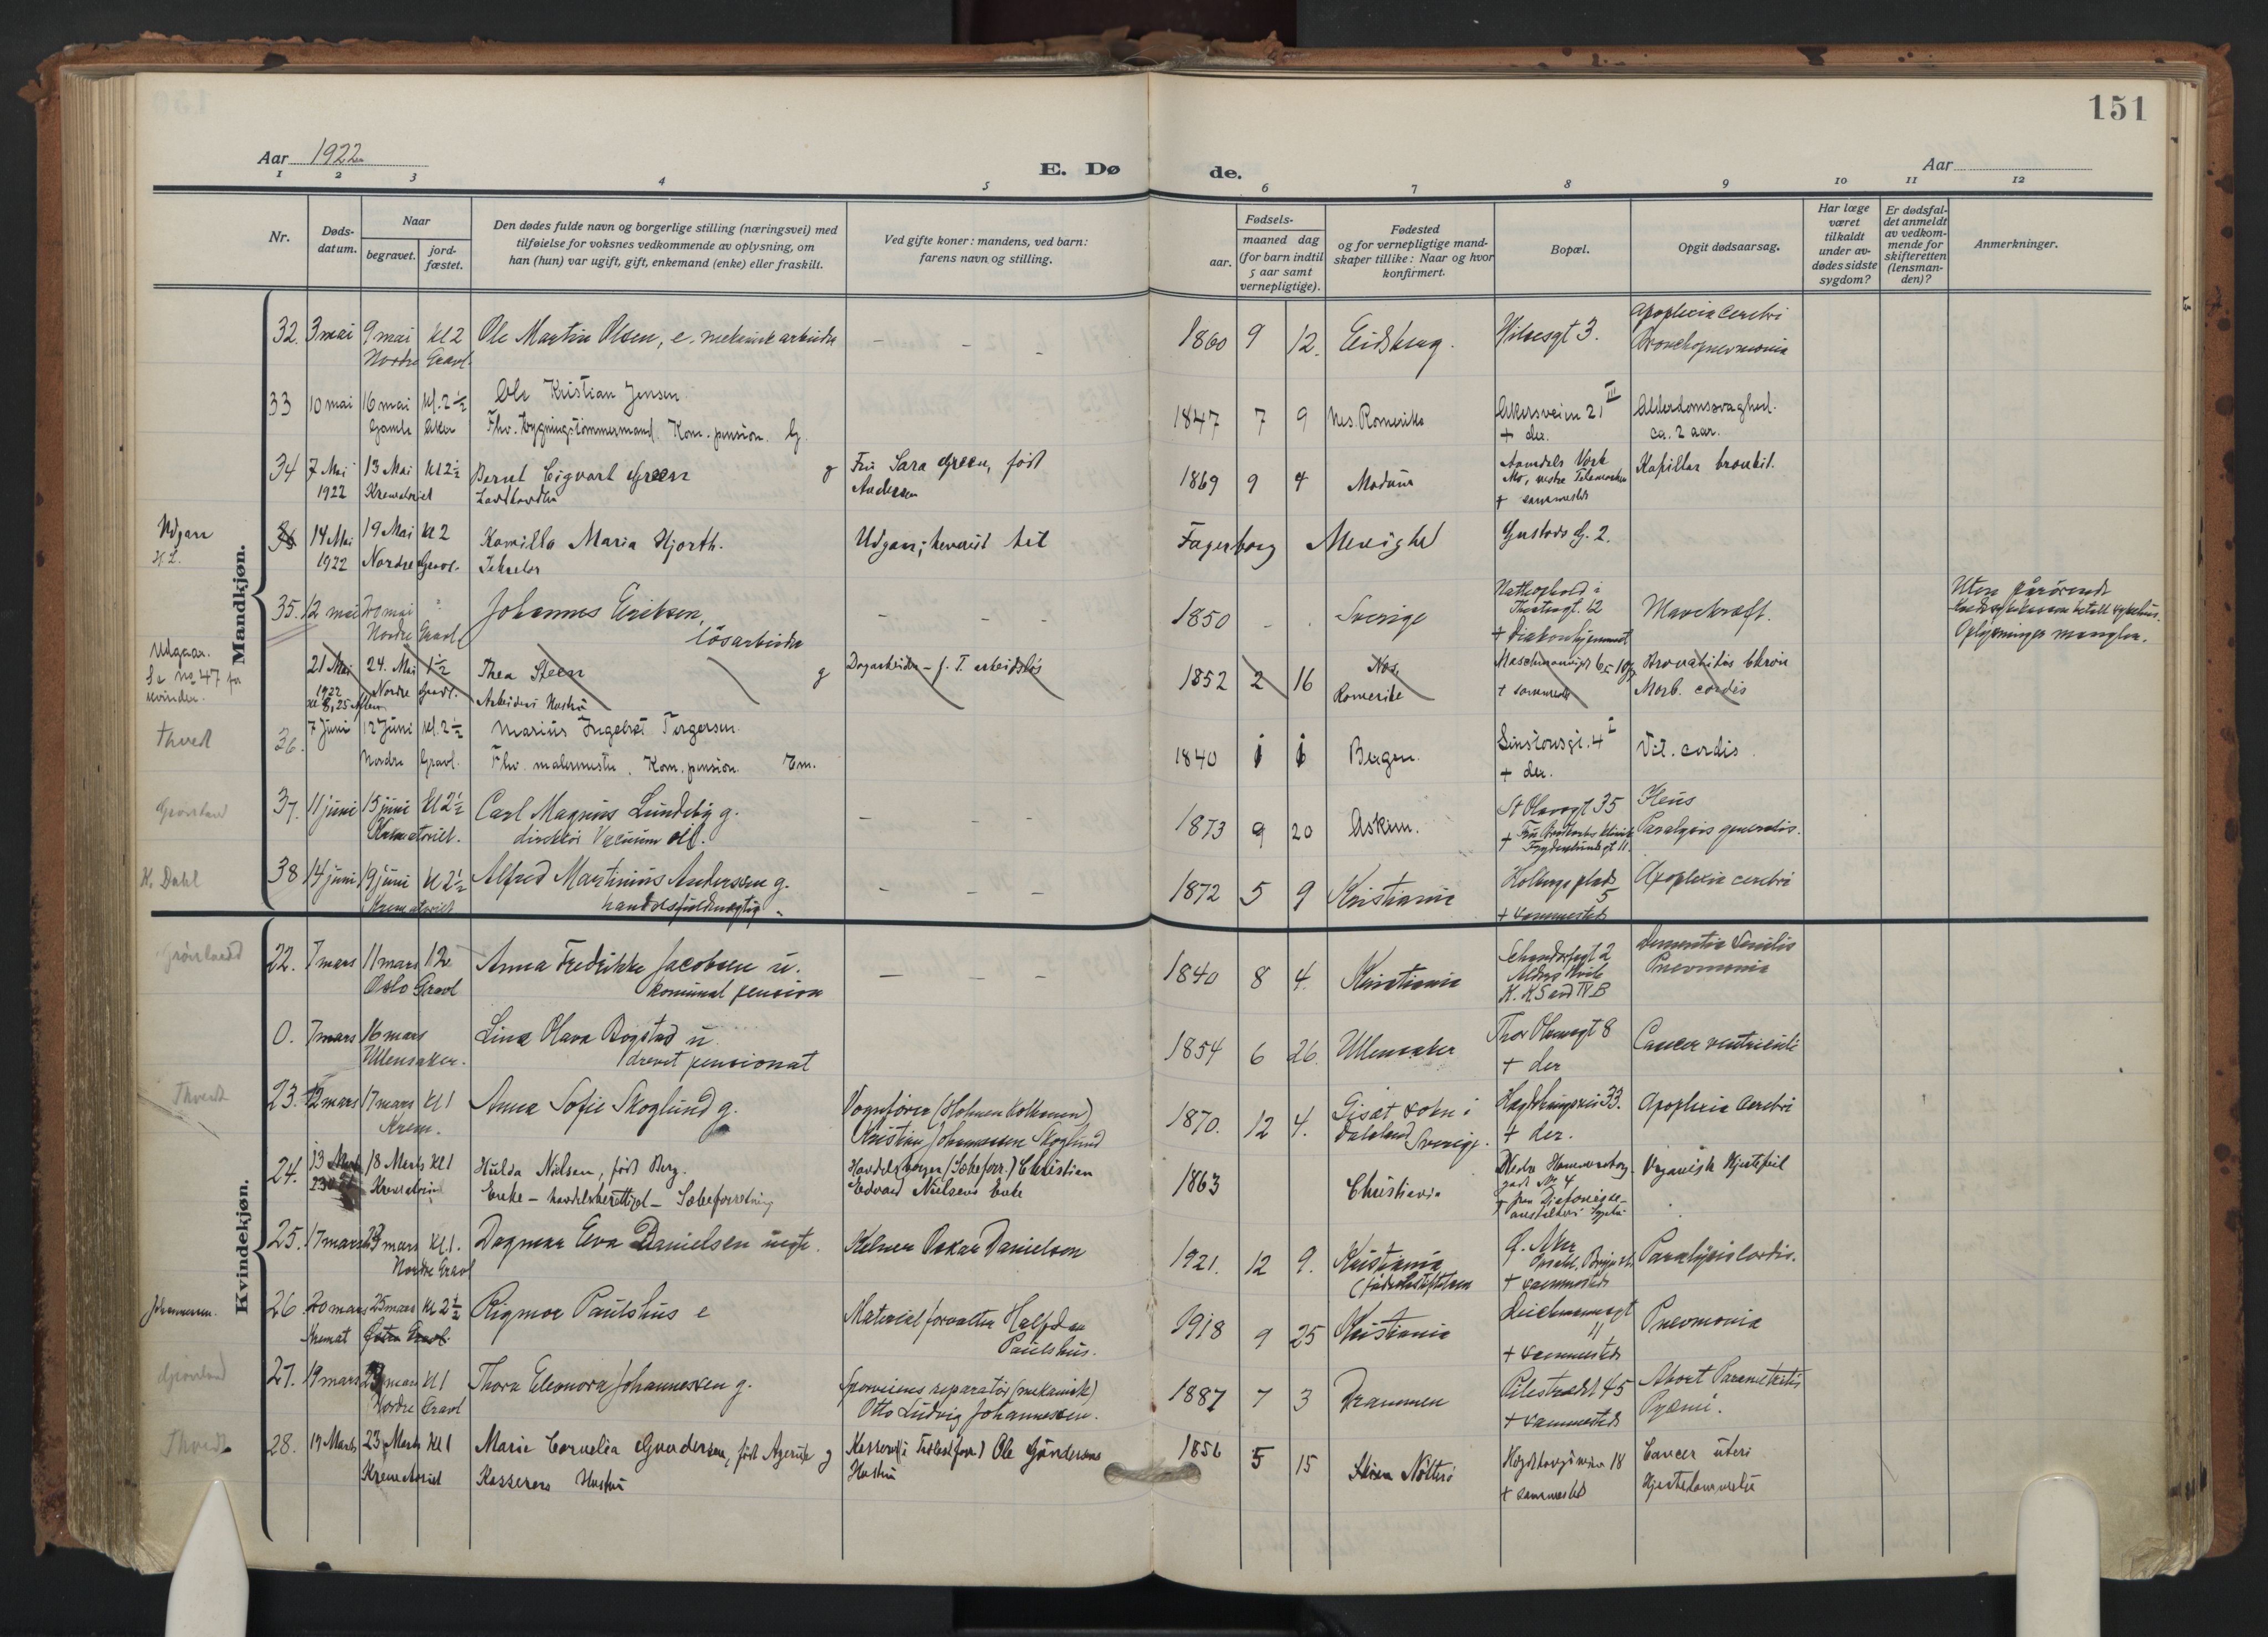 151
Aar 1922
E. Dø de.
Aar
1 2 3 4 5 6 7 8 9 10 11 12
Nr.
Døds-datum.
Naar
begravet.
jord-fæstet.
Den dødes fulde navn og borgerlige stilling (næringsvei) med
tilføielse for voksnes vedkommende av oplysning, om
han (hun) var ugift, gift, enkemand (enke) eller fraskilt.
Ved gifte koner: mandens, ved barn:
farens navn og stilling.
Fødsels-
aar.
maaned dag
(for barn indtil
5 aar samt
vernepligtige).
Fødested
og for vernepligtige mand-
skaper tillike: Naar og hvor
konfirmert.
Bopæl.
Opgit dødsaarsag.
Har læge
været
tilkaldt
under av-
dødes sidste
sygdom?
Er dødsfal-
det anmeldt
av vedkom-
mende for
skifteretten
(lensman-
den)?
Anmerkninger.
Mandkjøn.
32. 3 mai 9 mai kl 2 Ole Martin Olsen, e. mekanisk arbeider - - - 1860 9 12. Eidsberg. 3. Apoplexia cerebri
Nordre Gravl. Bronchopneumonia
33 10 mai 16 mai kl. 2½ Ole Kristian Jensen 1847 7 9 Nes. Romerike Akersveien 21 III Alderdomssvaghed.
Gamle Aker Fhv. bygningstömmermand. Kom. pension. G. + der. ca. 2 aar.
34 7 Mai 13 Mai kl 2½ Bernt Sigvart Green g Fru Sara Green, født 1869 9 4 Modum Aamdals Verk Kapillær bronkit.
1922 Krematoriet Andersen Mo, vestre Telemarken
+ sammesteds
Udgaar
H. L.
14 Mai 19 Mai kl 2 Kamilla Maria Hjorth. Udgaar; henvist til Fagerborg Menighed Gustavs g. 2.
1922 Nordre Gravl.
35. 12 mai 20 mai Johannes Eriksen, - - - 1850 - . Sverige Natteophold i Mavekræft. Uten pårørende
Nordre Gravl. løsarbeider 12
+ Diakonhjemmet Oplysninger mangler.
Udgaar.
Se No 47 for
kvinder.
21 Mai 24. Mai 1½ Thea Steen g Dagarbeider - f. T. arbeidsløs 1852 2 16 Nes, Bronchitis chron
1922 Nordre Gravl. Arbeiders Hustru Romerike + sammesteds Morb. cordis
kl 8,25 Aften
Thvedt
36. 7 Juni 12 Juni kl. 2½ Marius Ingebret Torgersen 1840 1 6 Bergen. 4 Vit. cordis.
Nordre Gravl. Fhv. malermester. Kom. pension. Em. + der.
37. 11 juni 15 juni kl 2½ Carl Magnus Lundeby g. - - - 1873 9 20 Askim. St Olavsgt 35 Ileus
Krematoriet. direktør Vacuum oil. Paralysis generalis.
K. Dahl
38 14 juni 19 juni kl 2½ Alfred Martinius Andersen g. - - - 1872 5 9 Kristiania Holbergs plads 5 Apoplexia cerebri
Krematoriet handelsfuldmægtig + sammesteds
Kvindekjøn.
Grønland
22. 7 mars 11 mars 12 Anna Fredrikke Jacobsen u. - - - 1840 8 4. Kristiania Dementia senilis
Oslo Gravl komunal pension Pneumonia
0. 7 mars 16 mars Lina Olava Bogstad u 1854 6 26. Ullensaker Thor Olsensgt 8 Cancer ventriculi
Ullensaker. drevet pensionat + der
Thvedt
23. 12 mars 17 mars kl 1 Anna Sofie Skoglund g. Vognfører (Holmen Kolbanen) 1870. 12 4. 33. Apoplexia cerebri
Krem. Kristian Johannessen Skoglund Dalsland Sverige. + der.
24. 13 Marts 18 Marts kl 1 Hulda Nielsen, født Berg. Christian 1863 Christiania Organisk Hjertefeil
Krematoriet Enke - handelsberettiget - Sæbeforretning Edvard Nielsens Enke
25. 17 mars 23 mars kl. 1. Dagmar Eva Danielsen Kelner Oskar Danielsen 1921. 12 9. Kristiania Paralysis cordis.
Nordre Gravl + sammesteds
Johannesen.
26. 20 mars 25 mars kl 2½ Rigmor Paulshus e Materialforvalter Halfdan 1918 9 25 Kristiania 11 Pneumonia
Kremat Østre Gravl. Paulshus. + sammesteds
Grønland
27. 19 mars 23 mars kl 1 Thora Eleonora Johannessen g. sporveiens reparatør (mekanisk) 1887 7 3 Drammen Pilestrædet 45 Abort Parametritis
Nordre Gravl Otto Ludvig Johannessen. + sammesteds Pyæmi.
Thvedt
28. 19 Marts 23 Marts kl 1 Marie Cornelia Gundersen, født g Ole Gundersens 1856 5 15 Nötterö 18 Cancer uteri
Krematoriet Kasserers Hustru Hustru + sammesteds Hjertelammelse